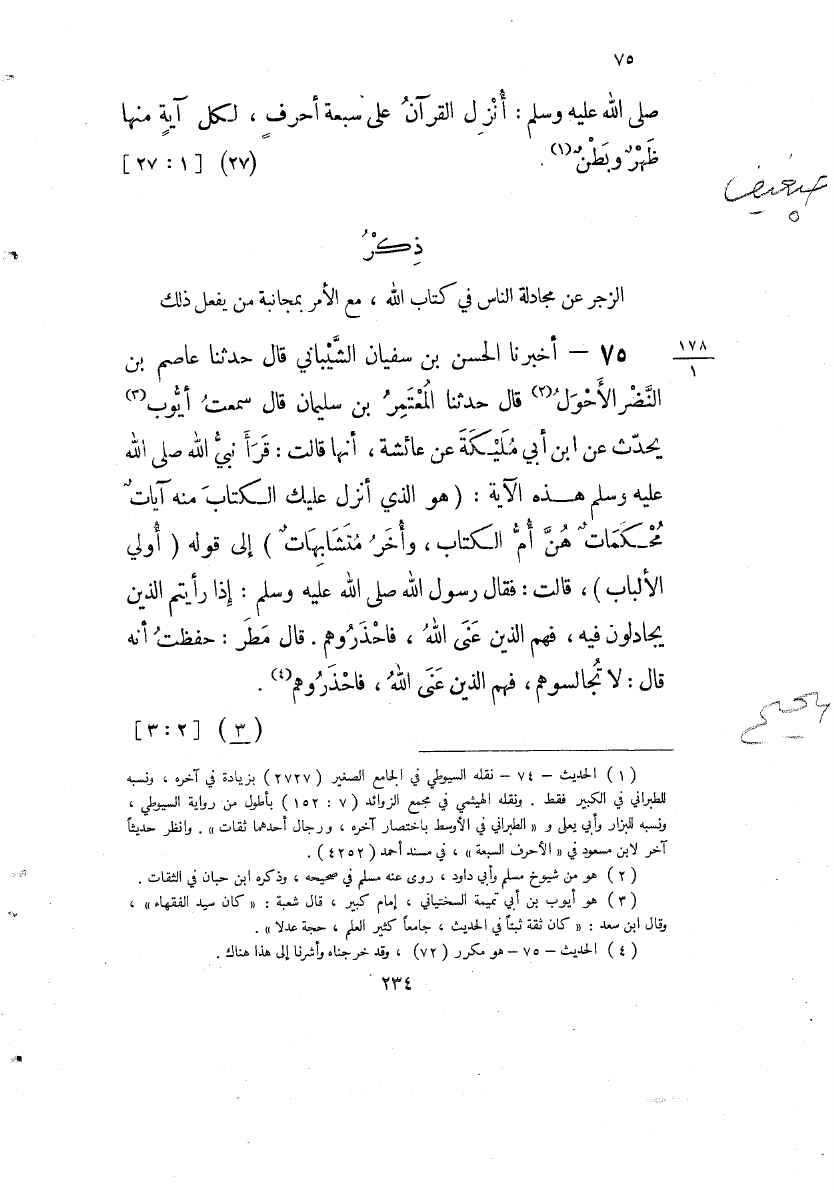 ٧٥
صلى الله عليه وسلم : أُنْزِل القرآنُ على سبعة أحرفٍ ، لكل آيةٍ منها
ظَهْرٌ وبَطْنٌ(١) . (٢٧) [٢٧ : ١]
ضعيف
ذِكْرُ
الزجر عن مجادلة الناس في كتاب الله ، مع الأمر بمجانبة من يفعل ذلك
١٧٨
١
٧٥ – أخبرنا الحسن بن سفيان الشَّيْباني قال حدثنا عاصم بن
النَّضْر الأَحْوَلُ(٢) قال حدثنا المُعْتَمِرُ بن سليمان قال سمعتُ أيُّوب(٣)
يحدّث عن ابن أبي مُلَيْكَةَ عن عائشة ، أنها قالت : قَرَأَ نبيُّ الله صلى الله
عليه وسلم هذه الآية : (هو الذي أنزل عليك الكتابَ منه آياتٌ
مُحْكَمَاتٌ هُنَّ أُمُّ الكتاب ، وأُخَرُ مُتَشَابِهَاتٌ ) إلى قوله ( أُولي
الألباب ) ، قالت : فقال رسول الله صلى الله عليه وسلم : إذا رأيتم الذين
يجادلون فيه ، فهم الذين عَنَى اللهُ ، فاحْذَرُوهم . قال مَطَر : حفظتُ أنه
قال : لا تُجالسوهم ، فهم الذين عَنَى اللهُ ، فاحْذَرُوهم(٤) .
صحيح
(٣) [٢ : ٣]
(١) الحديث – ٧٤ – نقله السيوطي في الجامع الصغير (٢٧٢٧) بزيادة في آخره ، ونسبه
للطبراني في الكبير فقط . ونقله الهيثمي في مجمع الزوائد (٧ : ١٥٢) بأطول من رواية السيوطي ،
ونسبه للبزار وأبي يعلى و « الطبراني في الأوسط باختصار آخره ، ورجال أحدهما ثقات » . وانظر حديثاً
آخر لابن مسعود في « الأحرف السبعة » ، في مسند أحمد (٤٢٥٢) .
(٢) هو من شيوخ مسلم وأبي داود ، روى عنه مسلم في صحيحه ، وذكره ابن حبان في الثقات .
(٣) هو أيوب بن أبي تميمة السختياني ، إمام كبير ، قال شعبة : « كان سيد الفقهاء » ،
وقال ابن سعد : « كان ثقة ثبتاً في الحديث ، جامعاً كثير العلم ، حجة عدلا » .
(٤) الحديث – ٧٥ – هو مكرر (٧٢) ، وقد خرجناه وأشرنا إلى هذا هناك .
٢٣٤